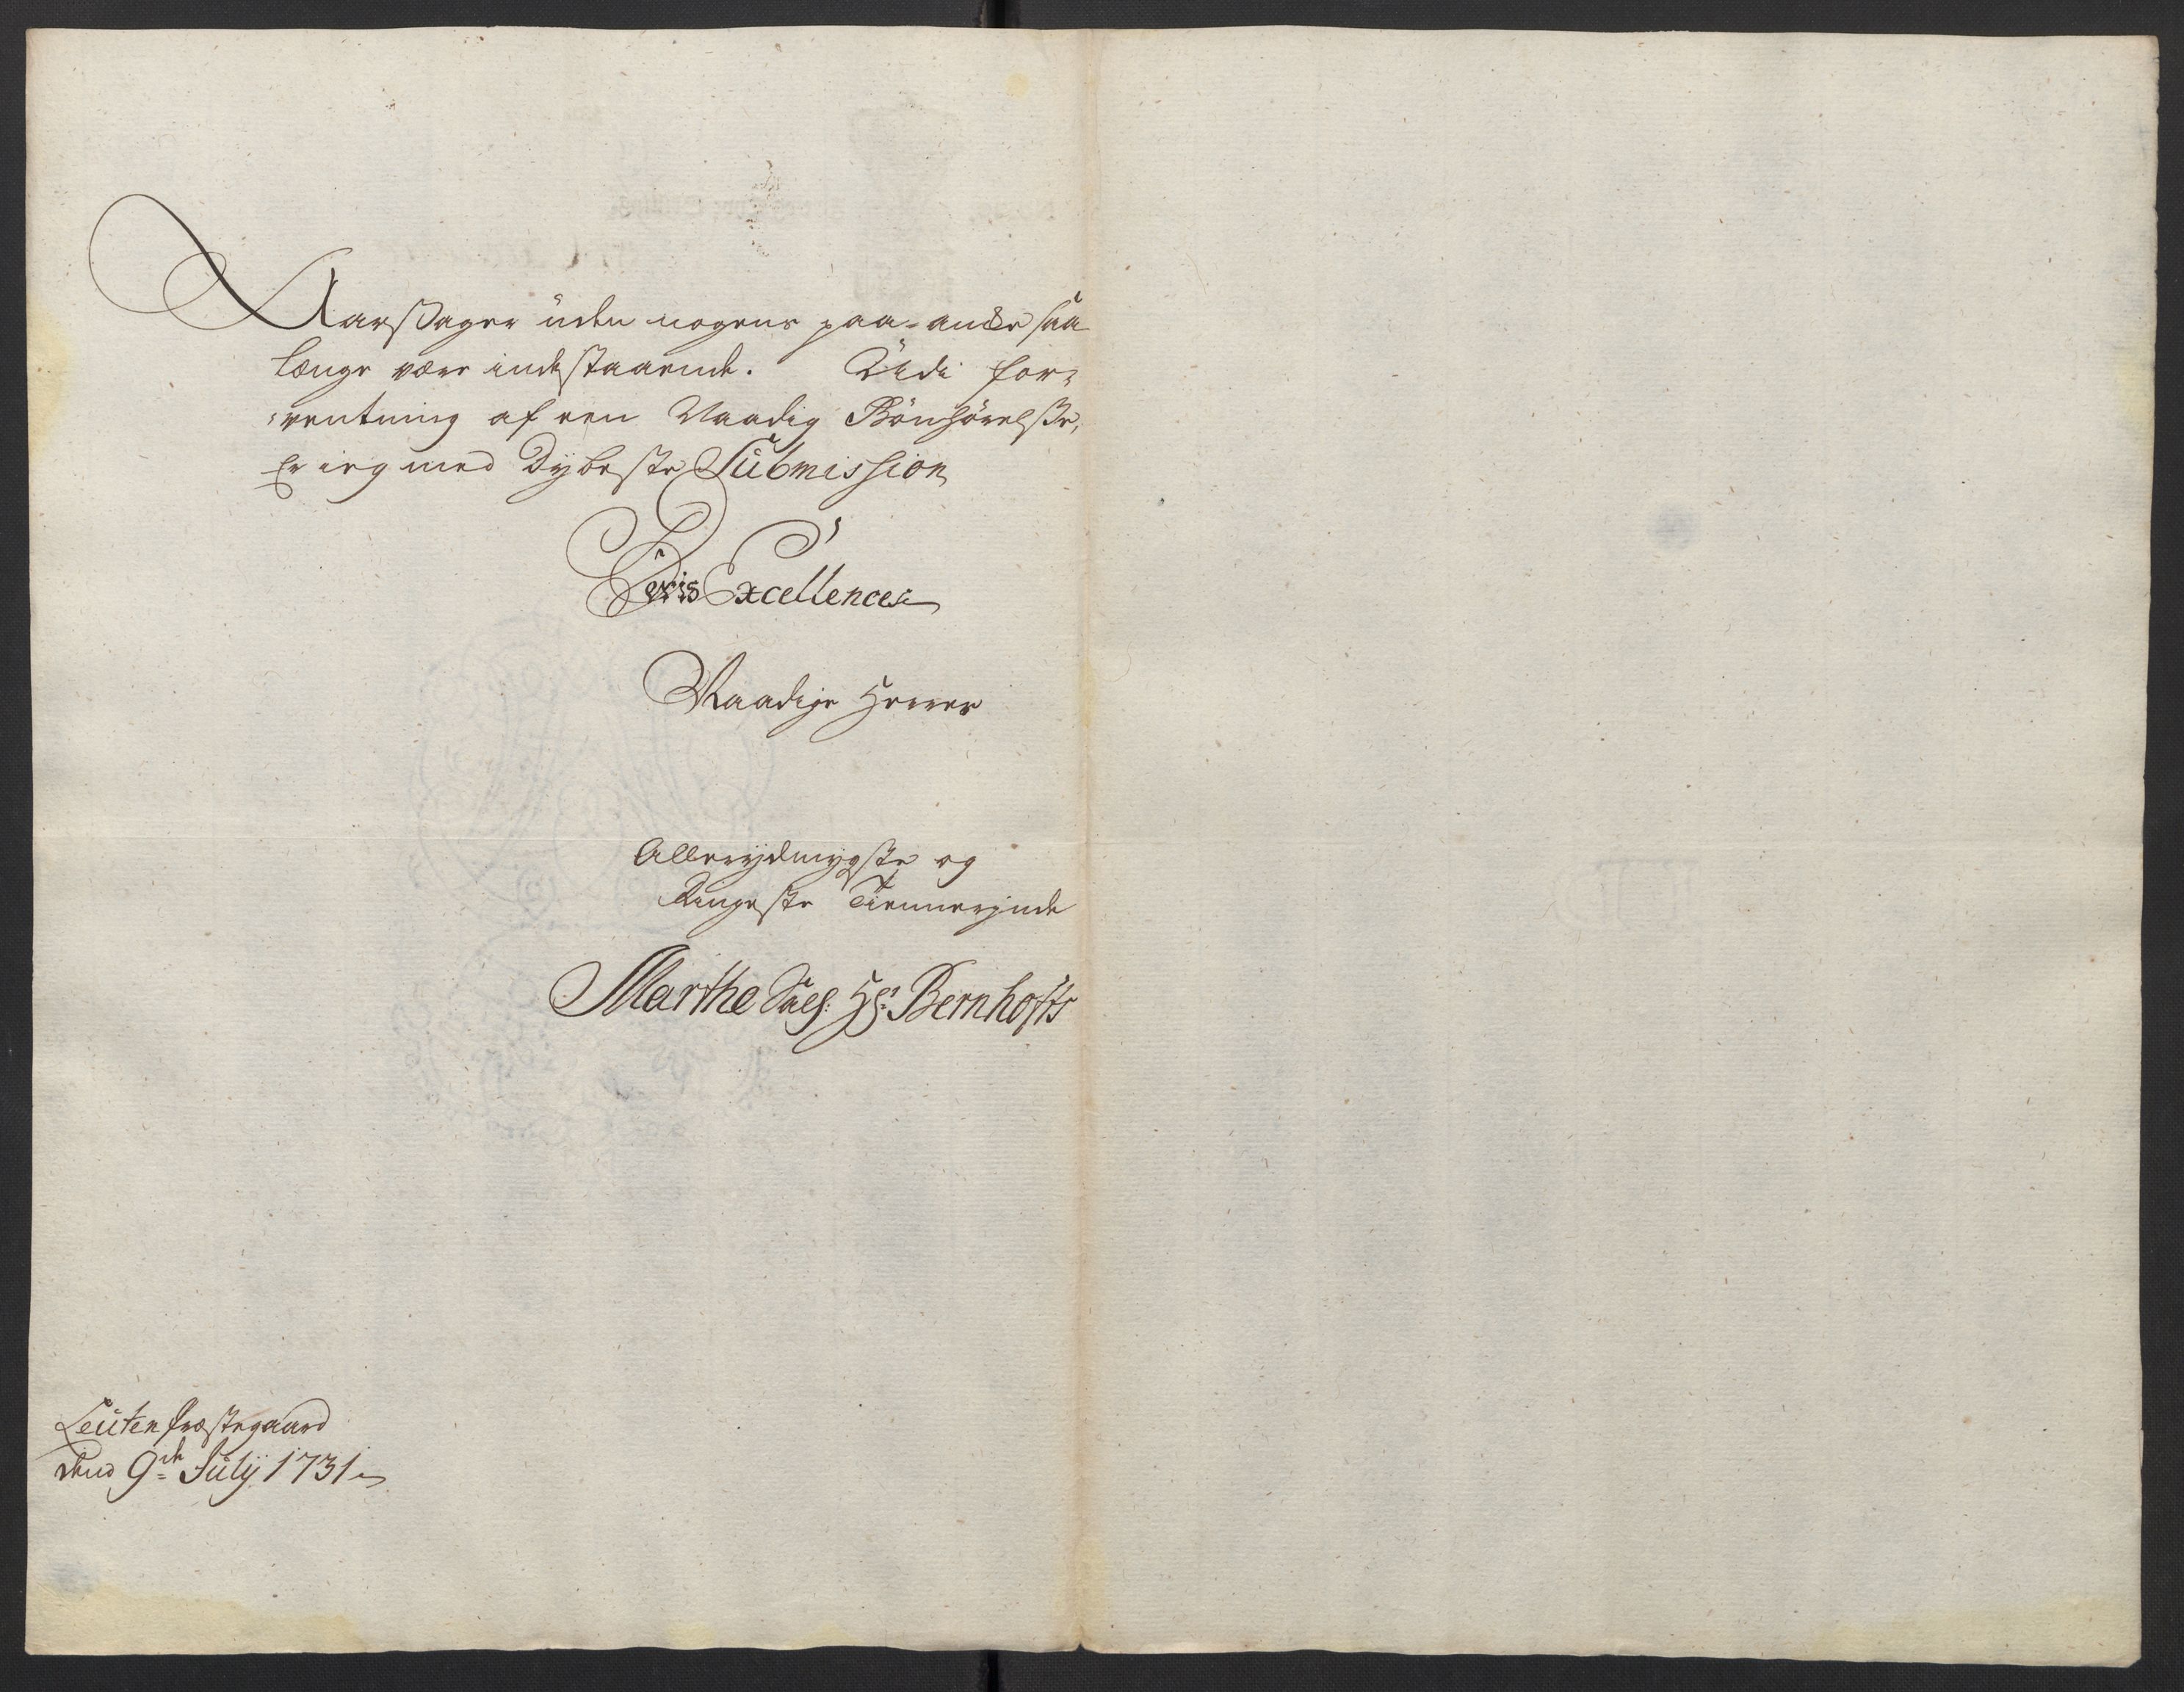 Aarsager uden nogens paa-ancke saa
længe være indestaaende. Udi for-
-ventning af een Naadig Bönhörelsse,
Er ieg med Dybeste Submission
Deris Excellences
Naadige Herrer
Allerydmygste og
Ringeste Tiennerinde
Marthe Sal: Hr: Bernhofts
Leuten Præstegaard
dend 9de July 1731